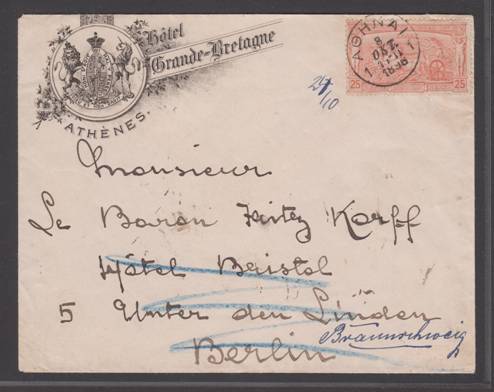 Hôtel
Grande-Bretagne
ATHÈNES.
ΑΘΗΝΑΙ
8
ΟΚΤ.
1896
1 1
25 25
27/10
Monsieur
Le Baron Korff
Hôtel Bristol
5 Unter den Linden
Berlin
Braunschweig